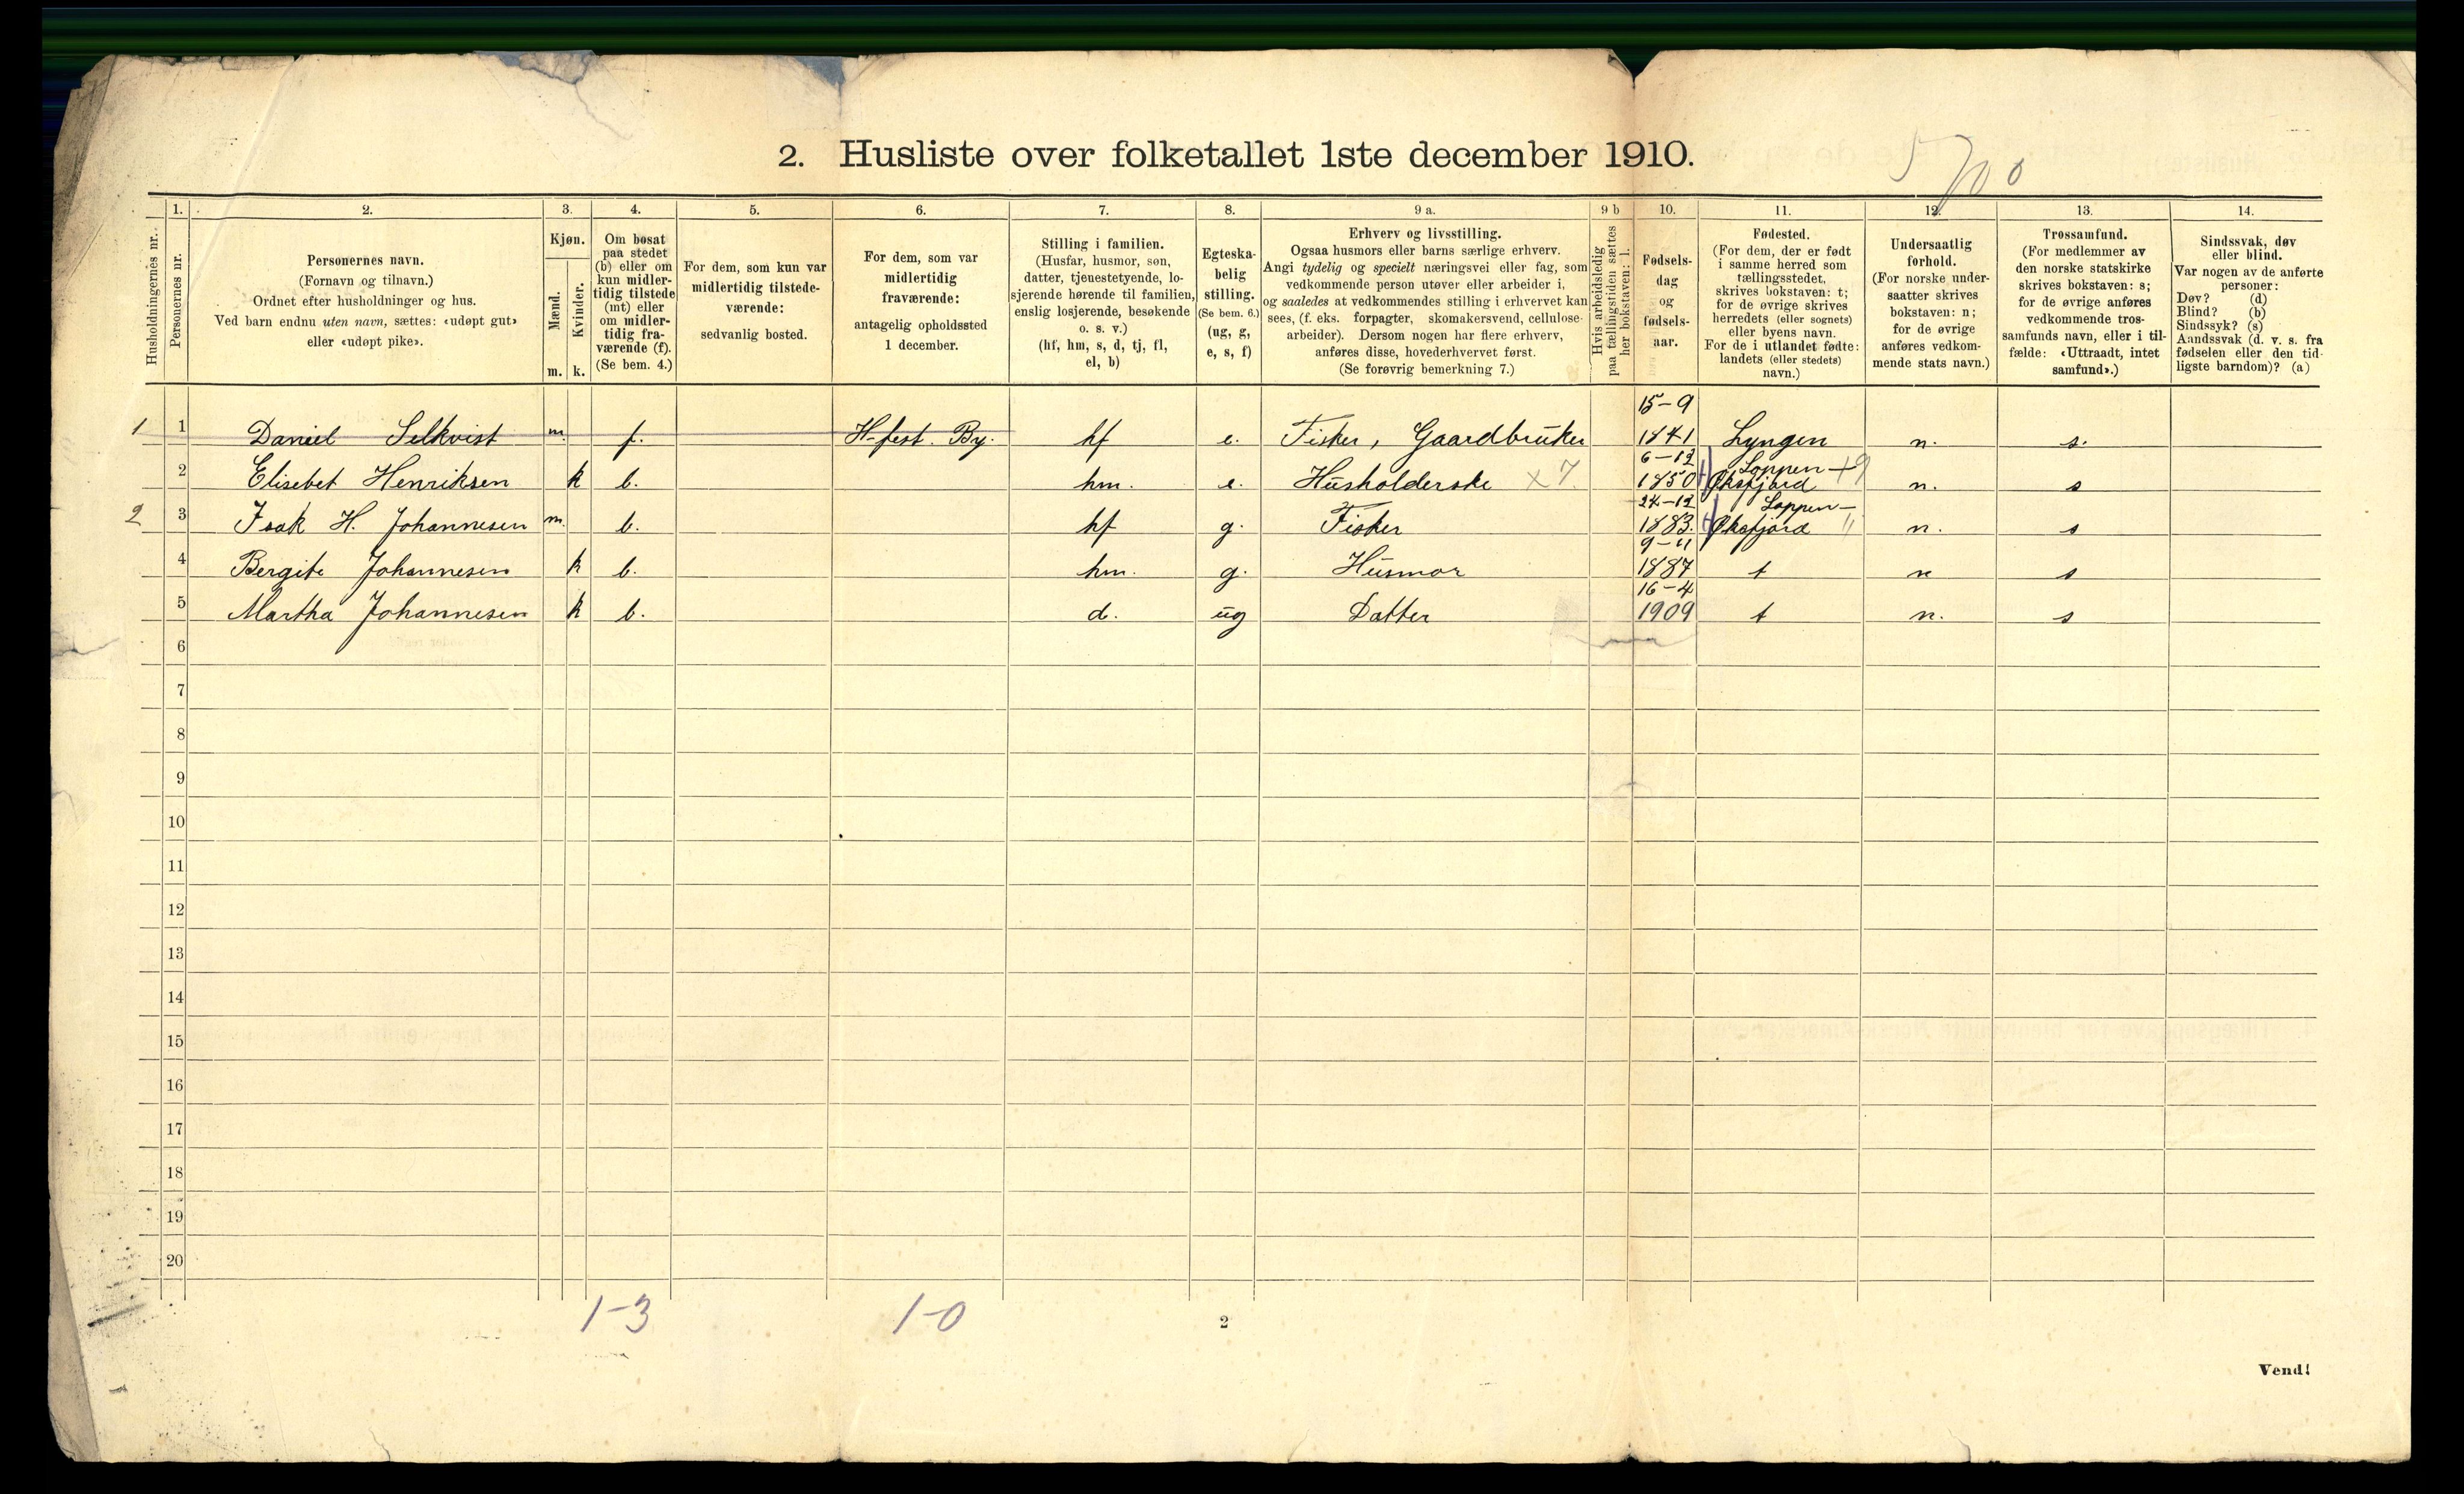 2. Husliste over folketallet 1ste december 1910.
5700
1. 2. 3. 4. 5. 6. 7. 8. 9 a. 9 b 10. 11. 12. 13. 14.
Husholdningernes nr.
Personernes nr.
Personernes navn.
(Fornavn og tilnavn.)
Ordnet efter husholdninger og hus.
Ved barn endnu uten navn, sættes: «udøpt gut»
eller «udøpt pike».
Kjøn.
Mænd.
Kvinder.
m. k.
Om bosat
paa stedet
(b) eller om
kun midler-
tidig tilstede
(mt) eller
om midler-
tidig fra-
værende (f).
(Se bem. 4.)
For dem, som kun var
midlertidig tilstede-
værende:
sedvanlig bosted.
For dem, som var
midlertidig
fraværende:
antagelig opholdssted
1 december.
Stilling i familien.
(Husfar, husmor, søn,
datter, tjenestetyende, lo-
sjerende hørende til familien,
enslig losjerende, besøkende
o. s. v.)
(hf, hm, s, d, tj, fl,
el, b)
Egteska-
belig
stilling.
(Se bem. 6.)
(ug, g,
e, s, f)
Erhverv og livsstilling.
Ogsaa husmors eller barns særlige erhverv.
Angi tydelig og specielt næringsvei eller fag, som
vedkommende person utøver eller arbeider i,
og saaledes at vedkommendes stilling i erhvervet kan
sees, (f. eks. forpagter, skomakersvend, cellulose-
arbeider). Dersom nogen har flere erhverv,
anføres disse, hovederhvervet først.
(Se forøvrig bemerkning 7.)
Hvis arbeidsledig
paa tællingstiden sættes
her bokstaven: l.
Fødsels-
dag
og
fødsels-
aar.
Fødested.
(For dem, der er født
i samme herred som
tællingsstedet,
skrives bokstaven: t;
for de øvrige skrives
herredets (eller sognets)
eller byens navn.
For de i utlandet fødte:
landets (eller stedets)
navn.)
Undersaatlig
forhold.
(For norske under-
saatter skrives
bokstaven: n;
for de øvrige
anføres vedkom-
mende stats navn.)
Trossamfund.
(For medlemmer av
den norske statskirke
skrives bokstaven: s;
for de øvrige anføres
vedkommende tros-
samfunds navn, eller i til-
fælde: «Uttraadt, intet
samfund».)
Sindssvak, døv
eller blind.
Var nogen av de anførte
personer:
Døv? (d)
Blind? (b)
Sindssyk? (s)
Aandssvak (d. v. s. fra
fødselen eller den tid-
ligste barndom)? (a)
1 1 Daniel Selkvist m. f. H-fest. By. hf e. Fisker, Gaardbruker 15-9 1841 Lyngen n. s.
2 Elisebet Henriksen k b. hm. e. Husholderske x 7. 6-12 1850 Loppen - Øksfjord +9 n. s
2 3 Isak H. Johannesen m. b. hf g. Fisker 24-12 1883. Loppen - Øksfjord " n. s
4 Bergite Johannesen k b. hm. g. Husmor 9-11 1887 t n s
5 Martha Johannesen k b. d. ug Datter 16-4 1909 t n. s
6
7
8
9
10
11
12
13
14
15
16
17
18
19
20
1-3 1-0
2
Vend!